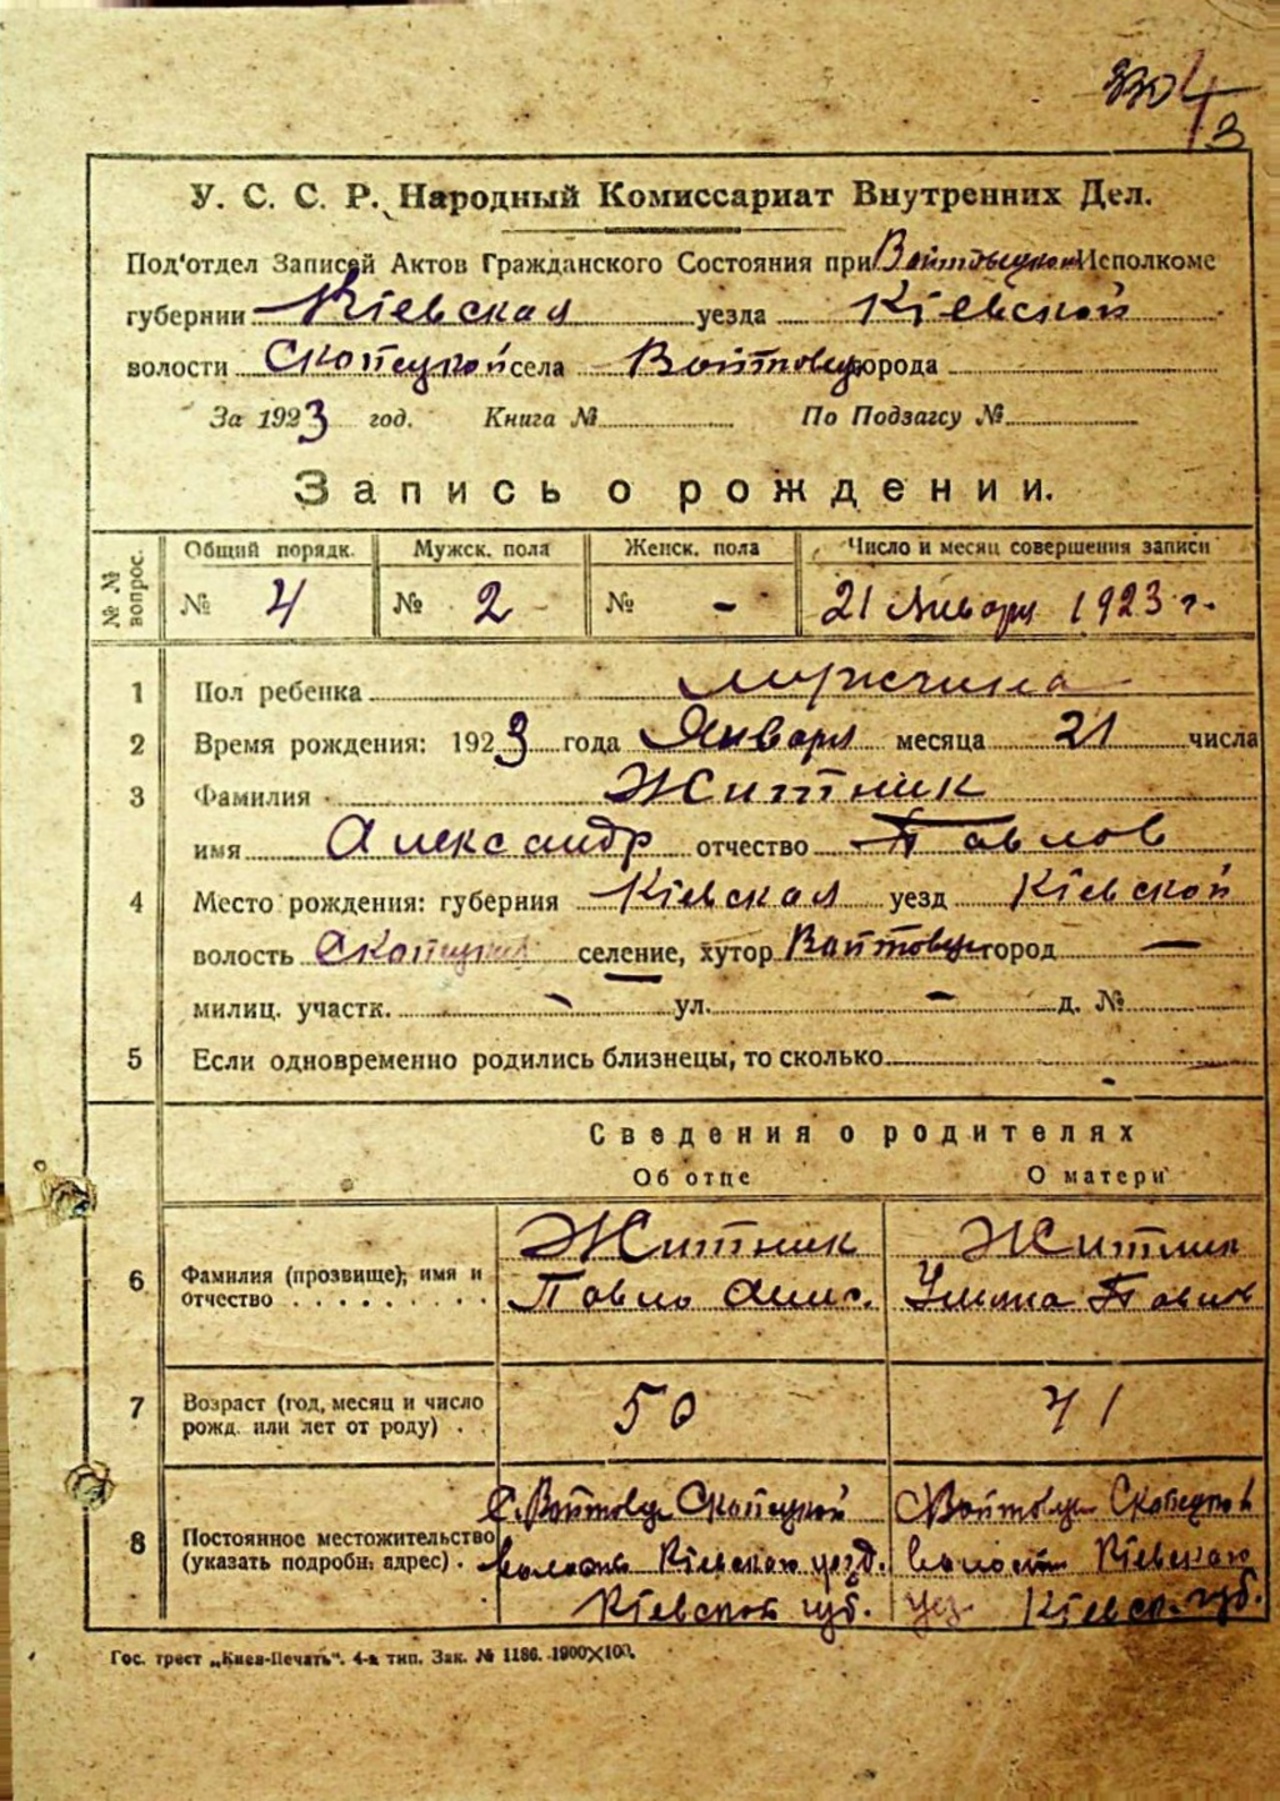 4
3
У. С. С. Р. Народный Комиссариат Внутренних Дел.
Под'отдел Записей Актов Гражданского Состояния при Войтовецком Исполкоме
губернии Кіевская уезда Кіевской
волости Скопецкой села Войтовцы города
За 1923 год. Книга № По Подзагсу №
Запись о рождении.
№ № вопрос. Общий порядк. Мужск. пола Женск. пола Число и месяц совершения записи
№ 4 № 2 - № - 21 Января 1923 г.
1 Пол ребенка мужчина
2 Время рождения: 1923 года Января месяца 21 числа
3 Фамилия Житник
имя Александр отчество Павлов
4 Место рождения: губерния Кіевская уезд Кіевской
волость Скопецкой селение, хутор Войтовцы город —
милиц. участк. - ул. - д. №
5 Если одновременно родились близнецы, то сколько -
Сведения о родителях
Об отце О матери
6 Фамилия (прозвище), имя и отчество Житник Житник
Павло Павлов
7 Возраст (год, месяц и число рожд. или лет от роду) 50 41
8 Постоянное местожительство (указать подробн. адрес) С. Войтовцы Скопецкой С Войтовцы Скопецкой
волости Кіевскаго уезд. волости Кіевскаго
Кіевской губ. уез. Кіевск. губ.
Гос. трест „Киев-Печать". 4-я тип. Зак. № 1186. 1900×100.